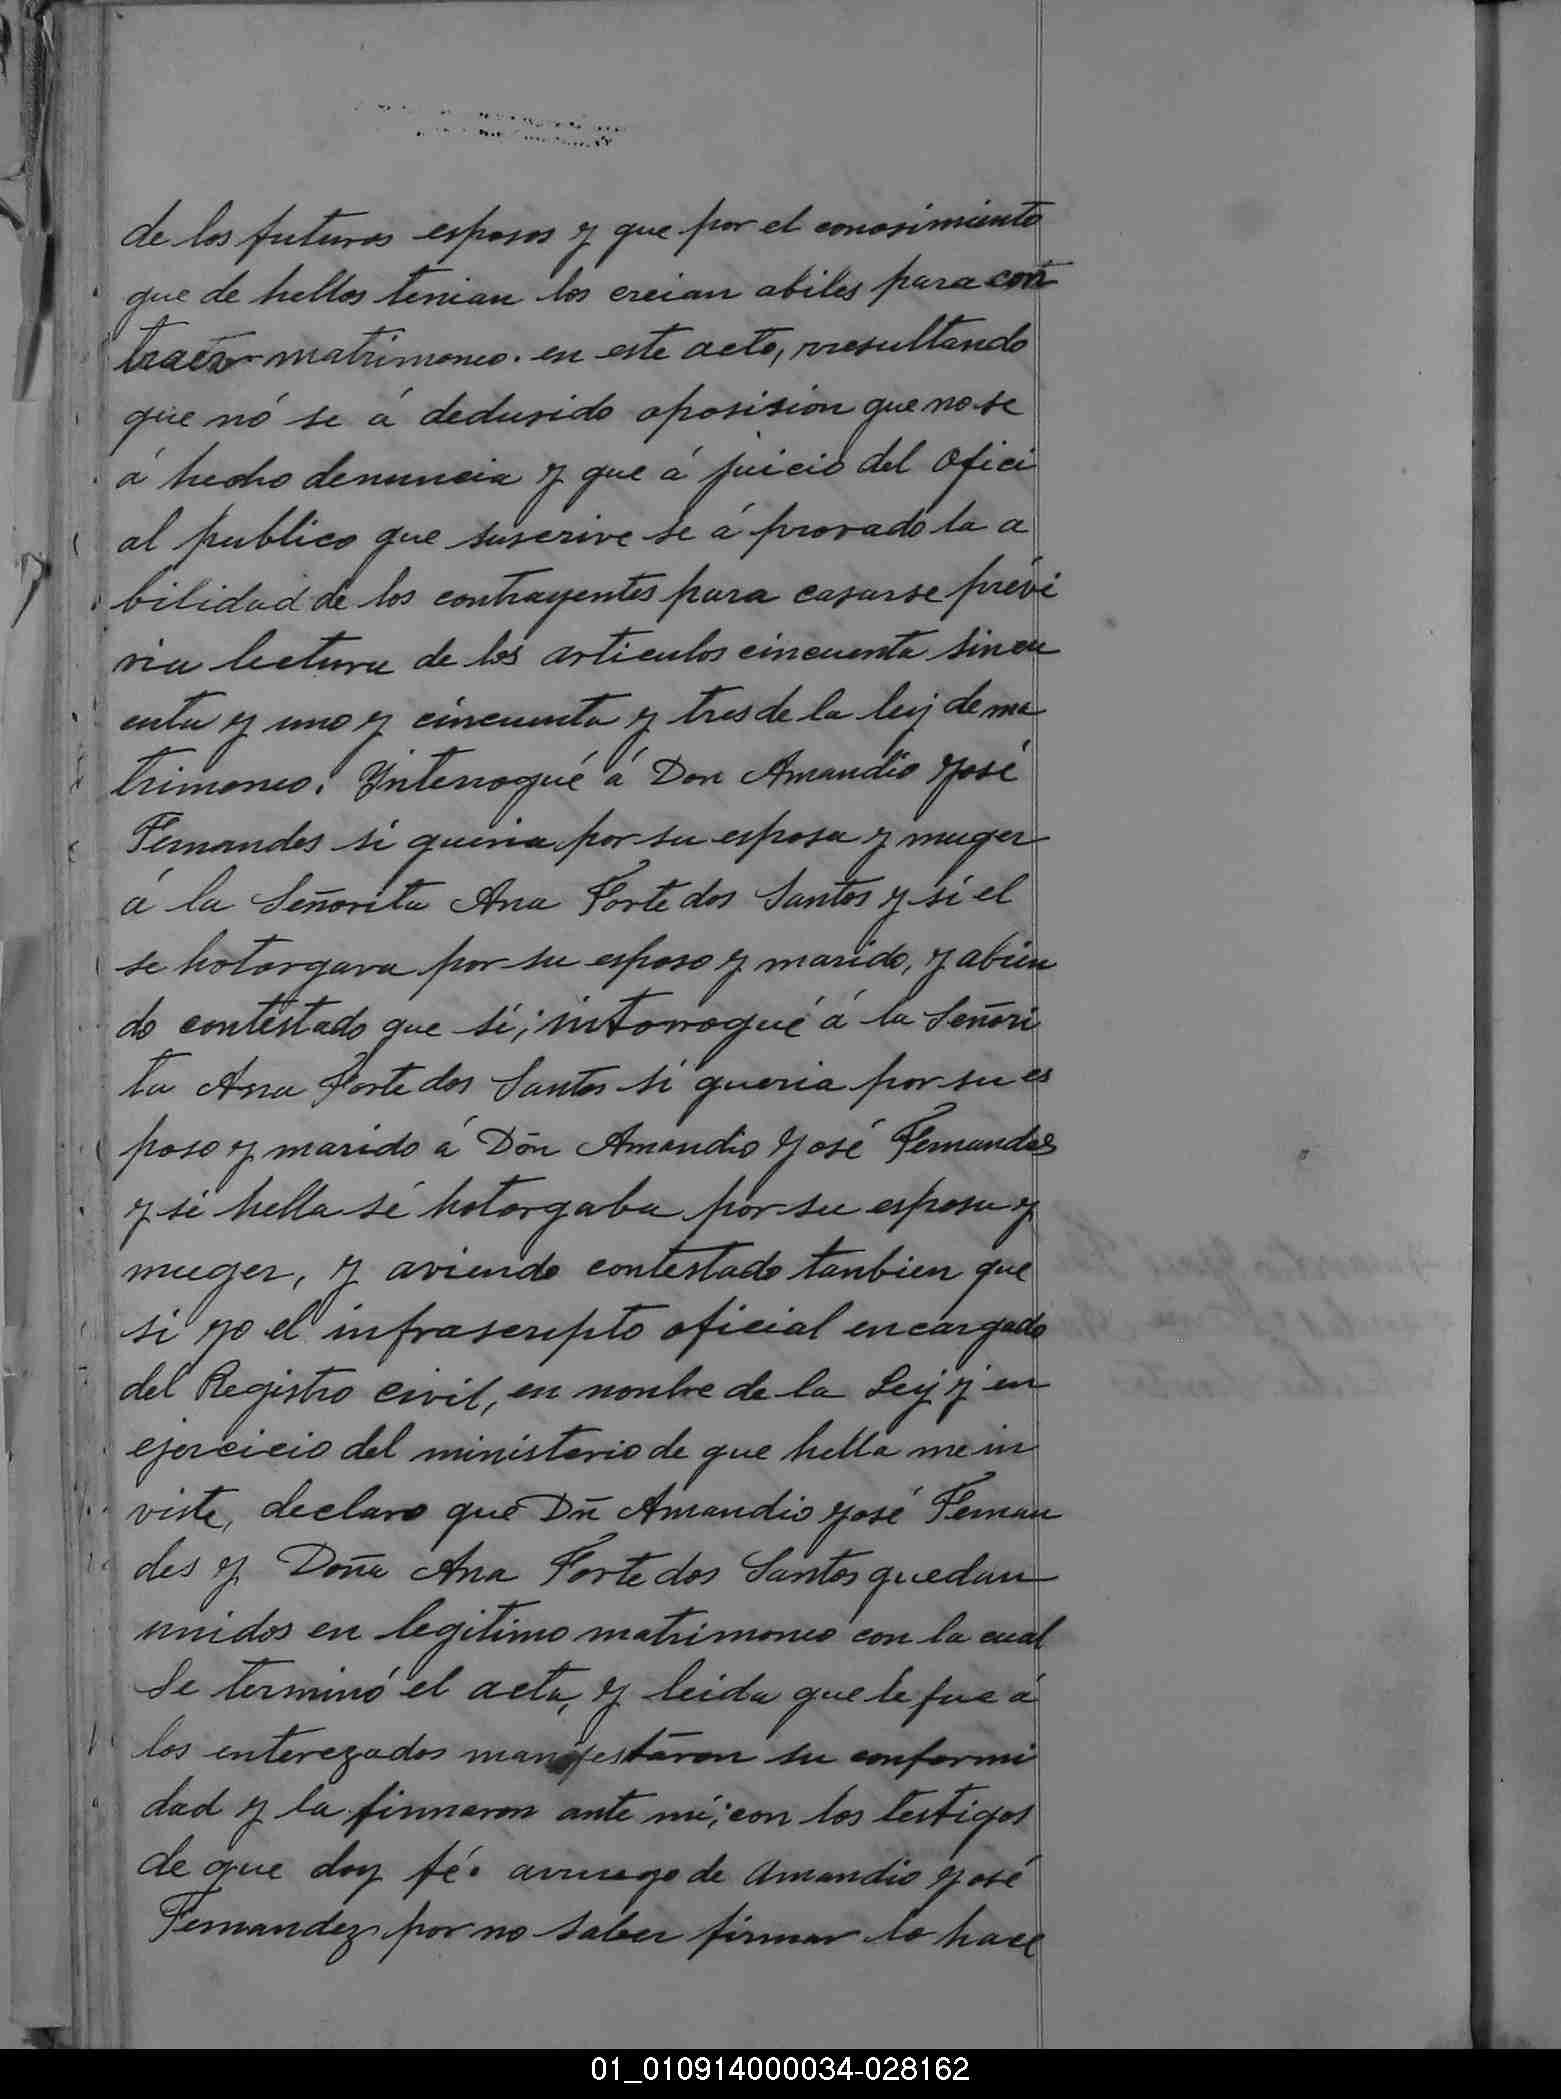 de los futuros esposos y que por el conosimiento
que de hellos tenian los creian abiles para con
traer matrimoneo. en este acto, rresultando
que nó se á dedusido oposision que no se
á hecho denuncia y que á juicio del Ofici
al publico que suscrive se á provado la a
bilidad de los contrayentes para casarse prévi
via lectura de los articulos cincuenta sincu
enta y uno y cincuenta y tres de la ley de ma
trimoneo. Ynterrogué á Don Amandio José
Fernandes si queria por su esposa y muger
á la Señorita Ana Forte dos Santos y si el
se hotorgava por su esposo y marido, y abien
do contestado que sí; interrogué á la Señori
ta Ana Forte dos Santos si queria por su es
poso y marido á Dón Amandio José Fernandes
y si hella sé hotorgaba por su esposa y
muger, y aviendo contestado tanbien que
si yo el infrascripto oficial encargado
del Registro civil, en nonbre de la Ley y en
ejercicio del ministerio de que hella me in
viste, declaro que Dn̄ Amandio José Fernan
des y Doña Ana Forte dos Santos quedan
unidos en legitimo matrimoneo con la cual
Se terminó el acta, y leida que le fue á
los enterezados manifestáron su conformi
dad y la firmaron ante mí; con los testigos
de que doy fé. arruego de Amandio José
Fernandez por no saber firmar lo hace
01_010914000034-028162